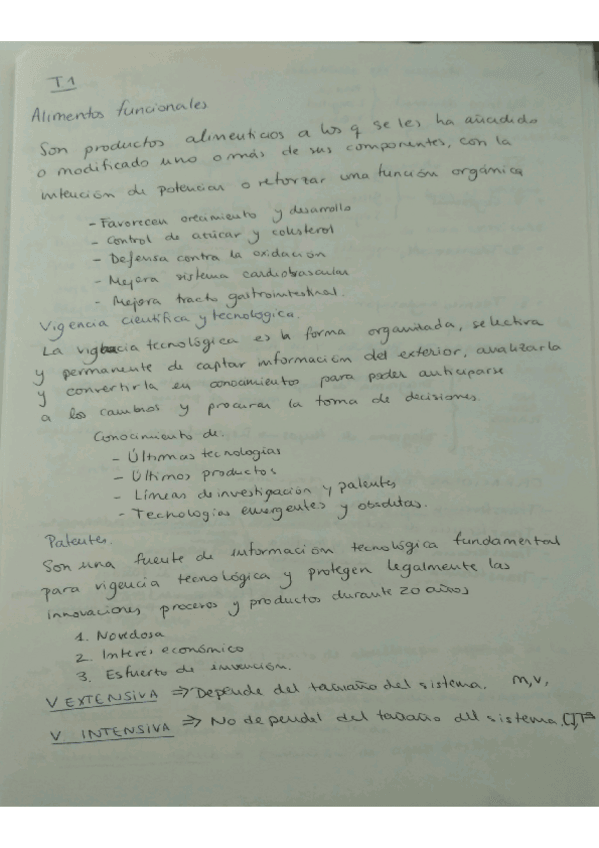 T1
Alimentos funcionales
Son productos alimenticios a los q se les ha añadido
o modificado uno o más de sus componentes, con la
intención de potenciar o reforzar una función orgánica
- Favorecen crecimiento y desarrollo
- Control de azúcar y colesterol
- Defensa contra la oxidación
- Mejora sistema cardiobrascular
- Mejora tracto gastrointestinal.
Vigencia científica y tecnológica.
La vigilacia tecnológica es la forma organizada, selectiva
y permanente de captar información del exterior, analizarla
y convertirla en conocimientos para poder anticiparse
a los cambios y procurar la toma de decisiones
Conocimiento de:
- Últimas tecnologías
- Últimos productos
- Líneas de investigación y patentes
- Tecnologías emergentes y obsoletas.
Patentes.
Son una fuente de información tecnológica fundamental
para vigencia tecnológica y protegen legalmente las
innovaciones, procesos y productos durante 20 años
1. Novedosa
2. Interés económico
3. Esfuerzo de invención.
V EXTENSIVA ⇒ Depende del tamaño del sistema. m, v,
V. INTENSIVA ⇒ No depende del tamaño del sistema.